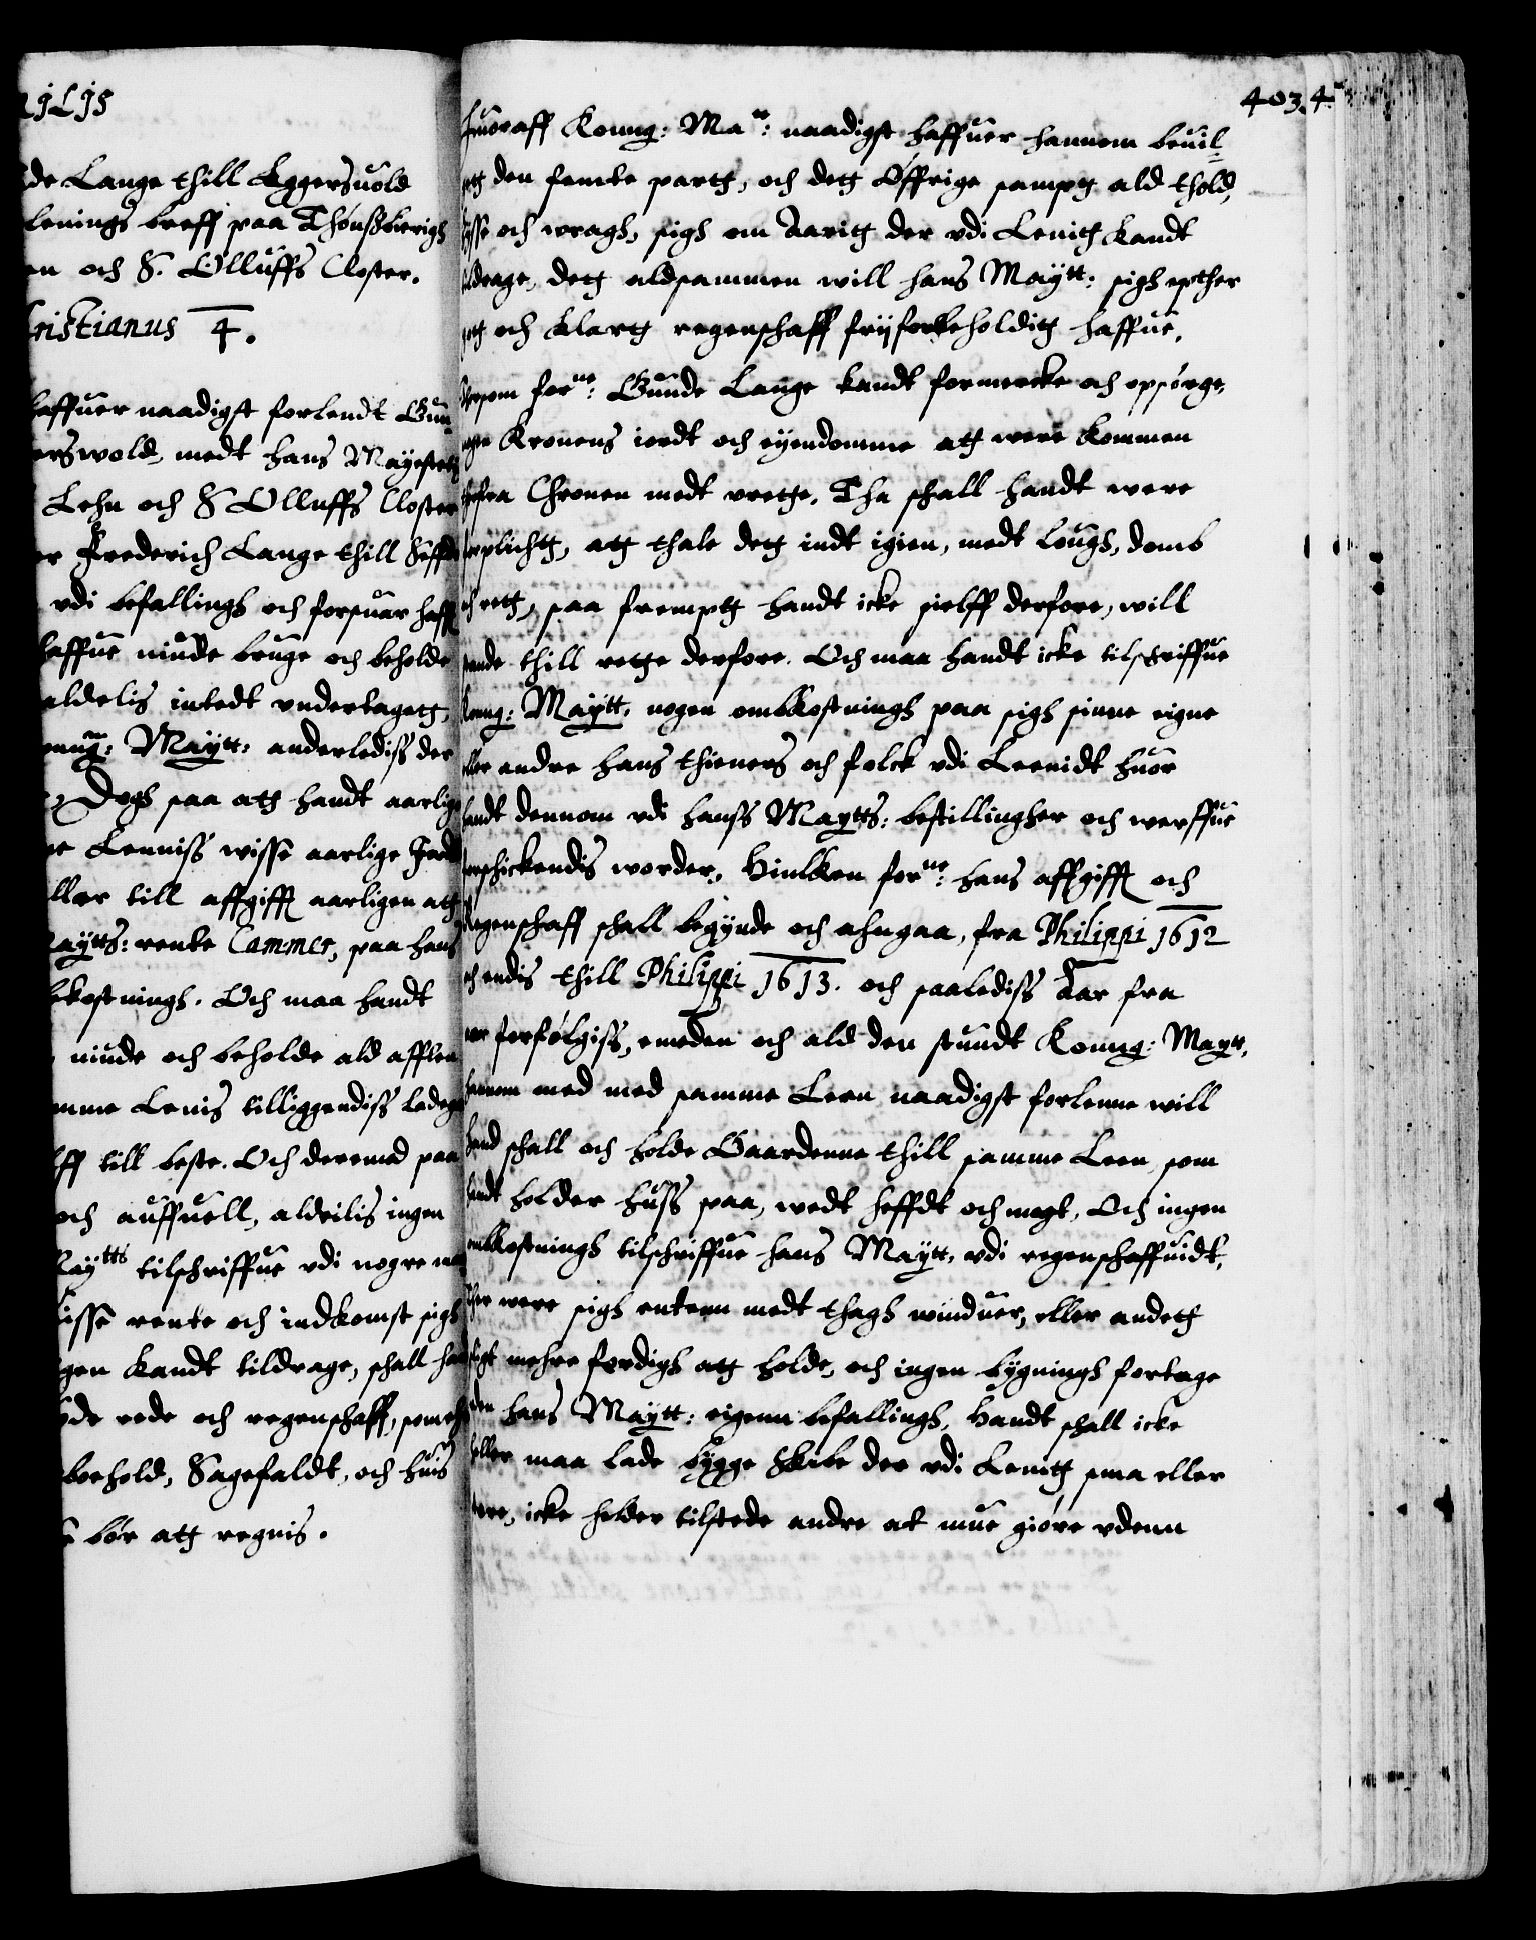 de Lange thill Eggersuold
lenings breff paa Thønßbierigs
en och S. Olluffs Closter.
Christianus 4.
haffuer naadigst forlendt Gun
erswold, medt hans Mayestetz
Lehn och S Olluffs Closter
er Frederich Lange thill
vdi befallings och forsuar haff
haffue niude bruge och beholde
aldelis intedt vndertagett,
Konng: Maytt: anderlediss der
Dogh saa att handt aarlige
Lenniss wisse aarlige Jord
ller till affgifft aarligen att
Maytts: rente Cammer, paa hans
bekostnings. Och maa handt
niude och beholde ald afflen
mme Lenis tilliggendiss ladegr
lff till beste. Och deremed saa
och auffuell, aldelis ingen
Maytts tilschriffue vdi nogre
uisse rente och indkomst sigh
gen kandt tildrage, shall
rede och regenschaff, som
behold, Sagefaldt, och huis
bør att regnis.
403. 4.
huoraff Konng: Matt: naadigst haffuer hannom beuil
gett den femte partt, och dett Øffrige samptt ald thold,
och wragh, sigh om Aaritt der vdi Lenitt kandt
ildrage, dett aldsammen will hans Maytt: sigh epther
och klartt regenschaff frij forbeholditt haffue.
Dersom forne: Gunde Lange kandt formercke och opsørge,
nogen Kronens iordt och eyendomme att were kommen
fra Chronen medt vrette, Tha schall handt were
forplichtt, att thale dett indt igien, medt lough, domb
och rett, saa fremptt handt icke sielff derfore, will
stande thill rette derfore. Och maa handt icke tilschriffue
Konng: Maytt, nogen ombkostnings paa sigh sinne eigne
eller andre hans thieners och folck vdi Leenidt huor
handt dennom vdi hanss Maytts: bestillingher och werffue
forschickendis worder. Huilken forne: hans affgifft och
Regenschaff shall begynde och ahngaa, fra Philippi 1612
och endis thill Philippi 1613. och saalediss Aar fra
aar forfølgiss, emeden och ald den stundt Konng: Maytt,
hanom med med samme Leen naadigst forlenne will
Hand schall och holde Gaardenne thill samme Leen som
handt holder huss paa, wedt heffdt och magt, Och ingen
ombkostnings tilschriffue hans Maytt, vdi regenschaffuidt,
Ther were sigh entenn medt thagh winduer, eller andett
sligt mehre ferdigh att holde, och ingen bygnings fortage
vden hans Maytt: eigenn befallings, Handt schall icke
heller maa lade bygge Skibe der vdi Lenitt smaa eller
store, icke helder tilstede andre at mue giøre vdenn